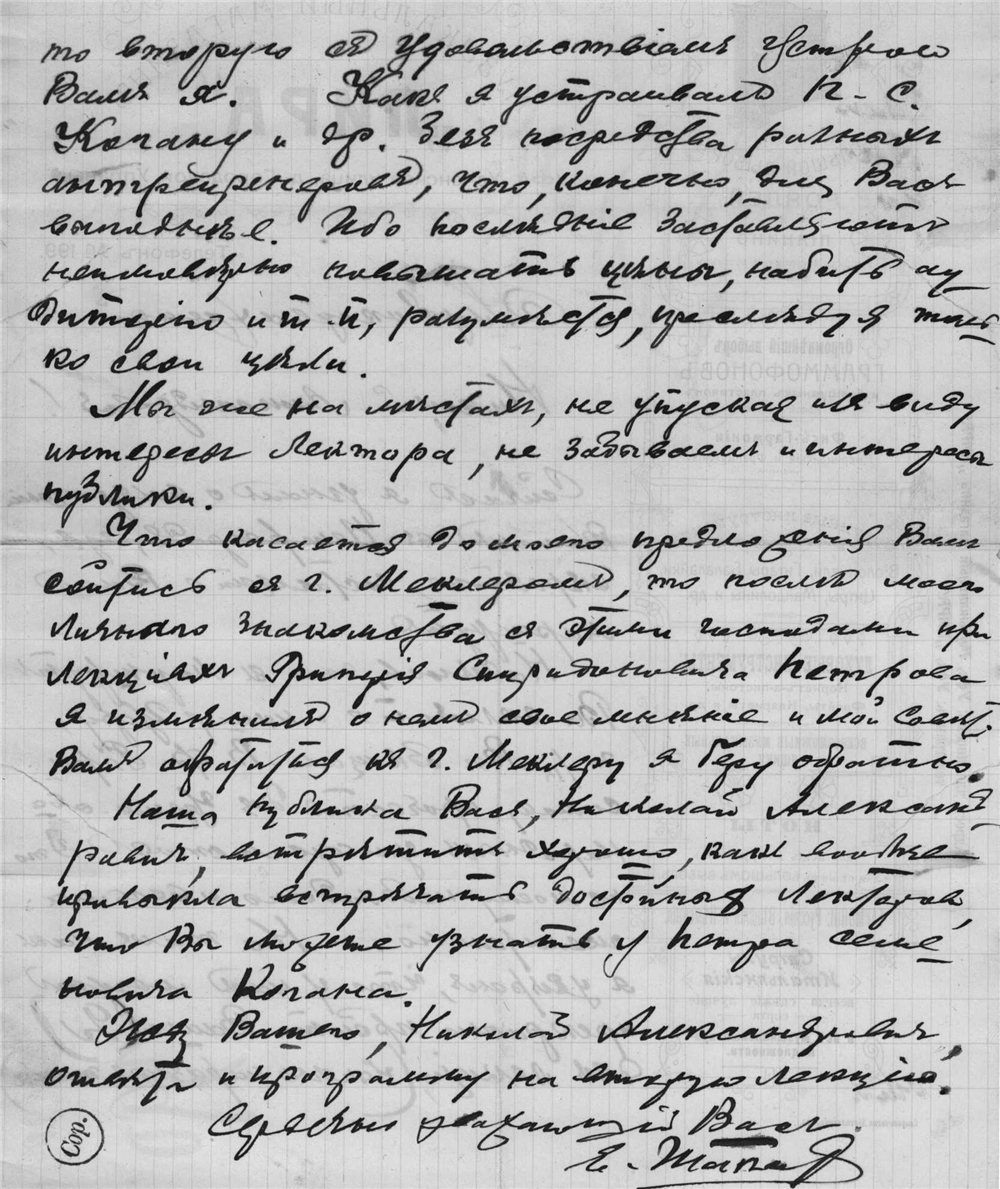 то вторую съ удовольствіемъ устрою
Вамъ я. Какъ я устраивалъ П. С.
Когану и др. безъ посредства разныхъ
антрепренеровъ, что, конечно, для Васъ
выгоднѣе. Ибо послѣдніе заставляютъ
неимовѣрно повышать цѣны, набить ау
диторію и т. п., разумѣется, преслѣдуя толь
ко свои цѣли.
Мы же на мѣстахъ, не упуская изъ виду
интересы Лектора, не забываемъ и интересы
публики.
Что касается до моего предложенія Вамъ
сойтись съ г. Меклеромъ, то послѣ моего
личнаго знакомства съ этими господами при
лекціяхъ Григорія Спиридоновича Петрова
я измѣнилъ о немъ свое мнѣніе и мой совѣтъ
Вамъ обратиться къ г. Меклеру я беру обратно.
Наша публика Васъ, Николай Александ
ровичъ, встрѣтитъ хорошо, какъ вообще
привыкла встрѣчать достойныхъ Лекторовъ,
что Вы можете узнать у Петра Семе
новича Когана.
Жду Вашего, Николай Александровичъ,
отвѣта и программу на вторую лекцію.
Сердечно уважающій Васъ
Сор.